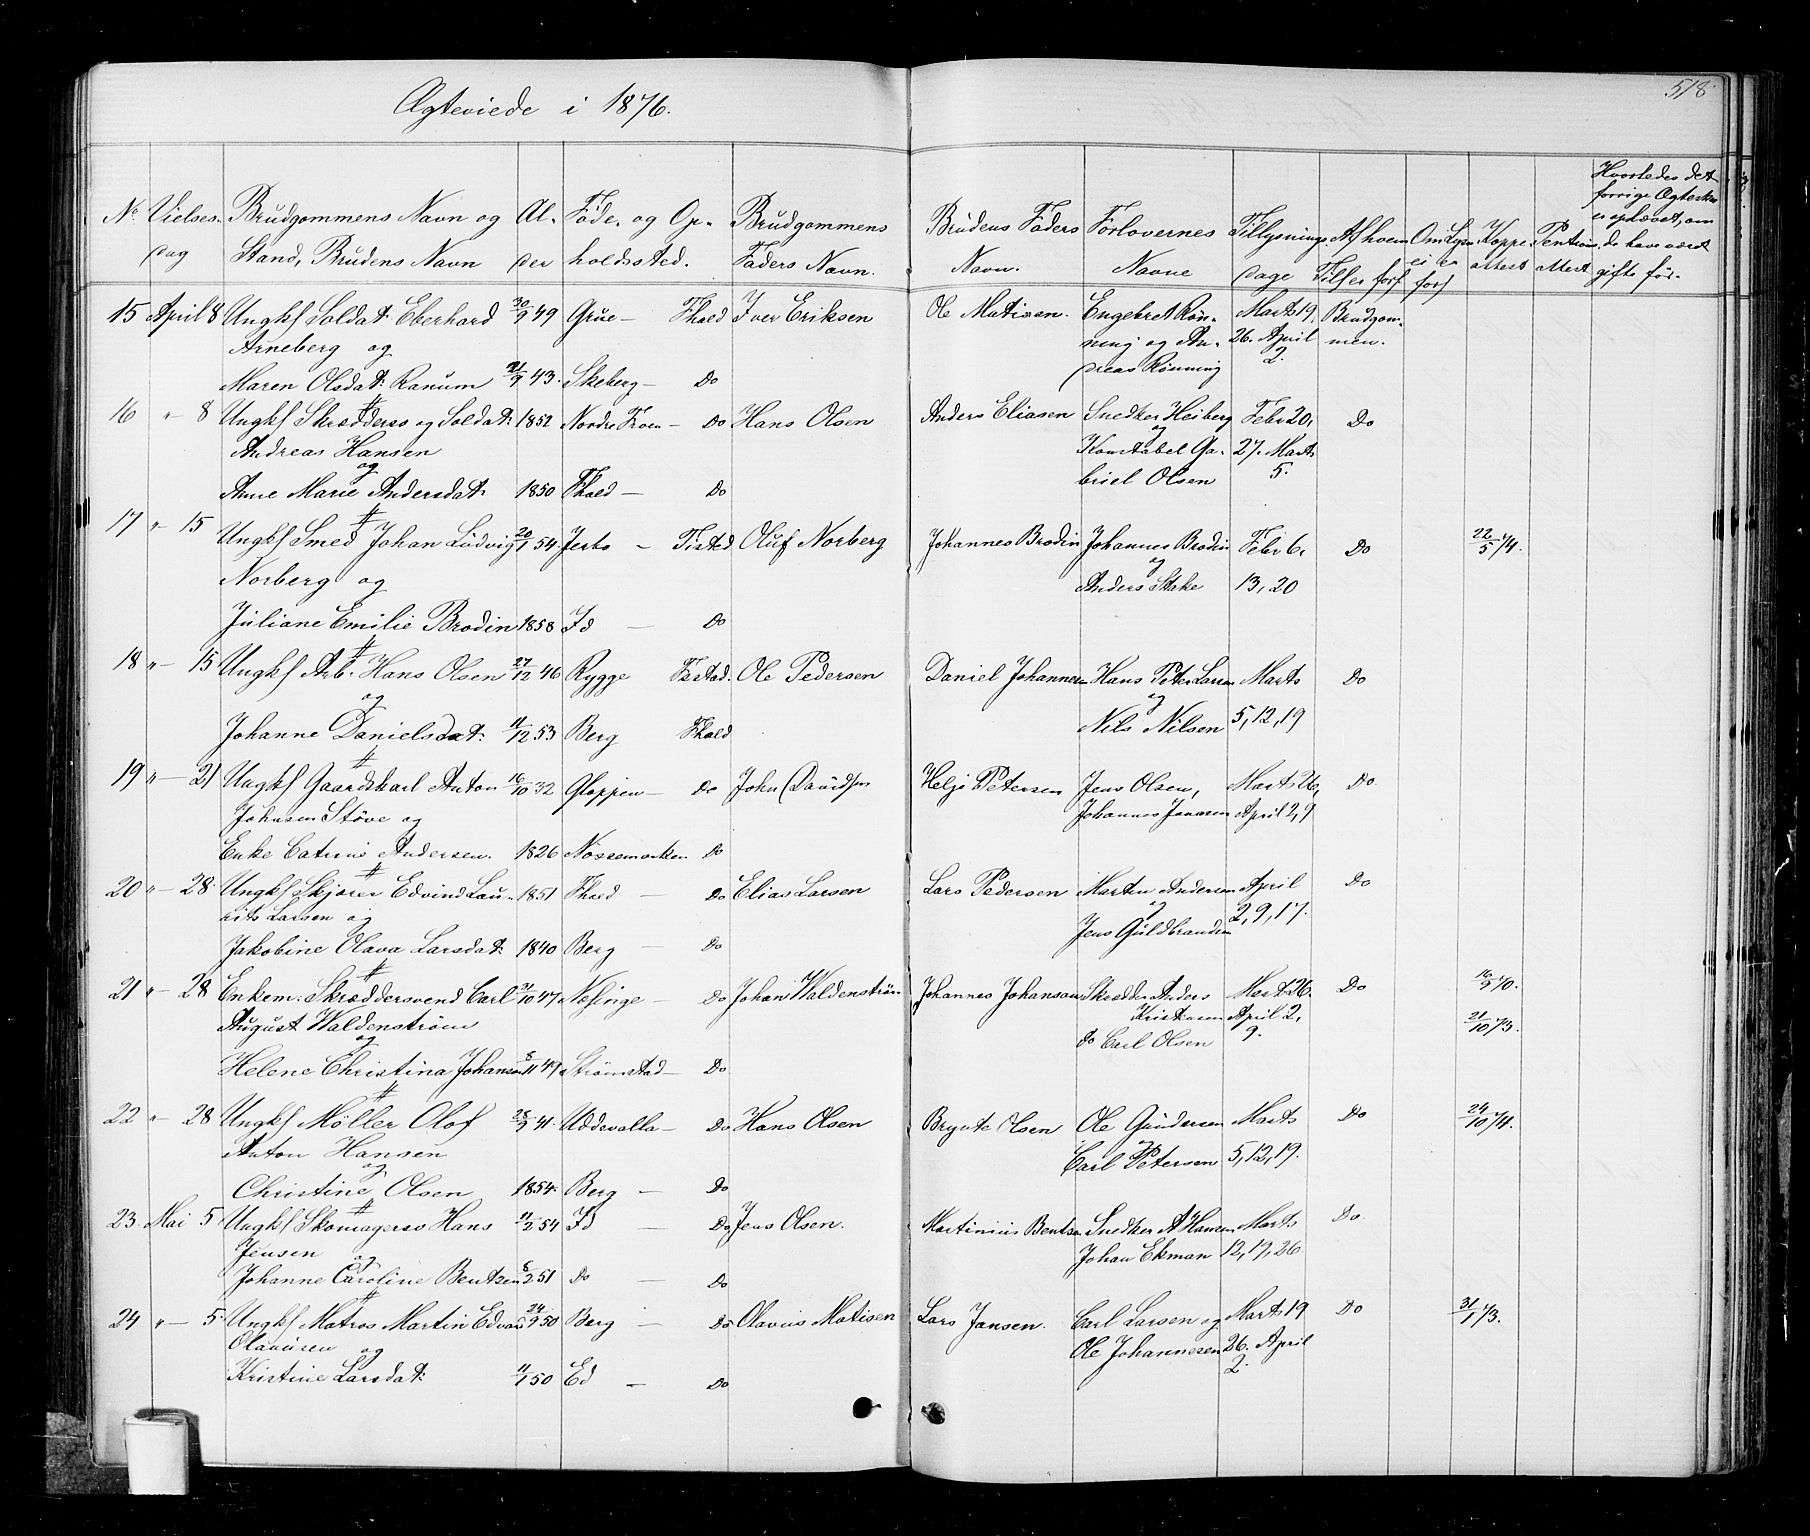 Ægteviede i 1876.
518
No Vielses- Brudgommens Navn og Al- Føde- og Op- Brudgommens Brudens Faders Forlovernes Tillysnings- Af hvem Om Lysn. Koppe Pentions Hvorledes det
dag Stand, Brudens Navn der holdssted. Faders Navn. Navn. Navne dage Tilser forl ei er forl attest attest forrige Ægtesk.
er ophævet, om
de have været
gifte før.
15 April 8 Ungkf Soldat Eberhard 30/9 49 Grue - Fhald Iver Eriksen Ole Matisen. Engebret Røn- Marts 19, Brudgom-
Arneberg og ning og An- 26. April men.
Maren Olsdat: Ranum 21/9 43. Skeberg - Do dreas Rønning 2.
16 " 8 Ungkf Skrædders og Soldat 1852 Nordre Froen - Do Hans Olsen Anders Eliasen Snedker Heiberg Febr 20, Do
Andreas Hansen og Konstabel Ga- 27. Marts
og
Anne Marie Andersdat: 1850 Fhald - Do briel Olsen 5.
17 " 15 Ungkf Smed Johan Ludvig 20/1 54. Jerbo - Tisted Oluf Norberg Johannes Brodin Johannes Brodin Febr 6, Do 22/5 74.
Norberg og og Anders Stake 13, 20
Juliane Emilie Brodin 1858 Id - Do
18 " 15 Ungkf Arb. Hans Olsen 27/12 46 Rygge Tistad. Ole Pedersen Daniel Johannes Hans Peter Larsen Marts Do
og og
Johanne Danielsdat: 11/12 53 Berg Fhald Nils Nilsen 5, 12, 19
19 " 21 Ungkf Gaardskarl Anton 16/10 32 Gloppen - Do John Davidsen Helje Petersen Jens Olsen, Marts 26, Do
Johnsen Støve og Johannes Jonasen April 2, 9
Enke Catrine Andersen. 1826 Nössemarken Do
20 " 28 Ungkf Skjører Edvind Lau- 1851 Fhald - Do Elias Larsen Lars Pedersen Martin Andersen April Do
rits Larsen og og 2, 9, 17.
Jakobine Olava Larsdat: 1840 Berg - Do Jens Guldbrandsen
21 " 28 Enkem. Skræddersvend Carl 31/10 47 Næsinge - Do Johan Waldenström Johannes Johanson Skrædder Anders Marts 26. Do 16/9 70.
August Waldenström Kristensen April 2, 21/10 73.
og do Carl Olsen 9.
Helene Christina Johansen 8/11 49 Strømstad - Do
22 " 28 Ungkf Möller Olof 28/9 41. Uddevalla - Do Hans Olsen Brynte Olsen Ole Gundersen Marts Do 24/10 74.
Anton Hansen og Carl Petersen 5, 12, 19.
og
Christine Olsen 1854. Berg - Do
23. Mai 5 Ungkf Skomagersv Hans 11/2 54 Id - Do Jens Olsen. Martinius Bentsen Snedker A Hansen Marts Do
Jensen og Johan Ekman 12, 19, 26
Johanne Caroline Bentsen 8/2 51 Do - Do
24 " 5. Ungkf Matros Martin Edvard 24/9 50 Berg - Do Olavus Matisen Lars Jansen. Carl Larsen og Marts 19 Do 31/1 73.
Olausen og Ole Johannesen 26. April
Kristine Larsdat: 11/1 50 Ed - Do 2.